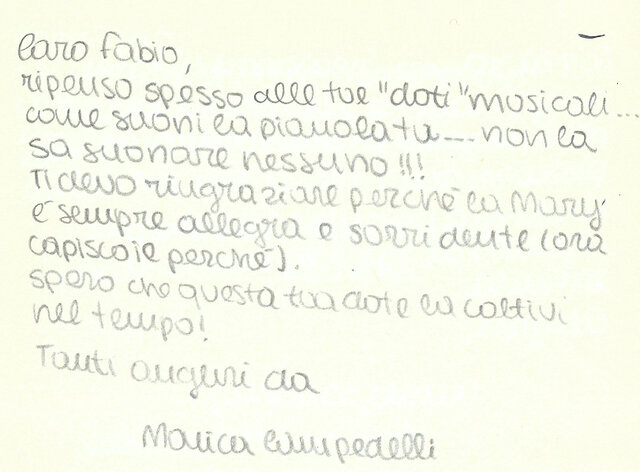 Caro Fabio,
ripenso spesso alle tue "doti" musicali...
come suoni la pianola tu.... non la
sa suonare nessuno!!!
Ti devo ringraziare perché la Mary
è sempre allegra e sorridente (ora
capisco il perché).
spero che questa tua dote la coltivi
nel tempo!
Tanti auguri da
Monica Campedelli